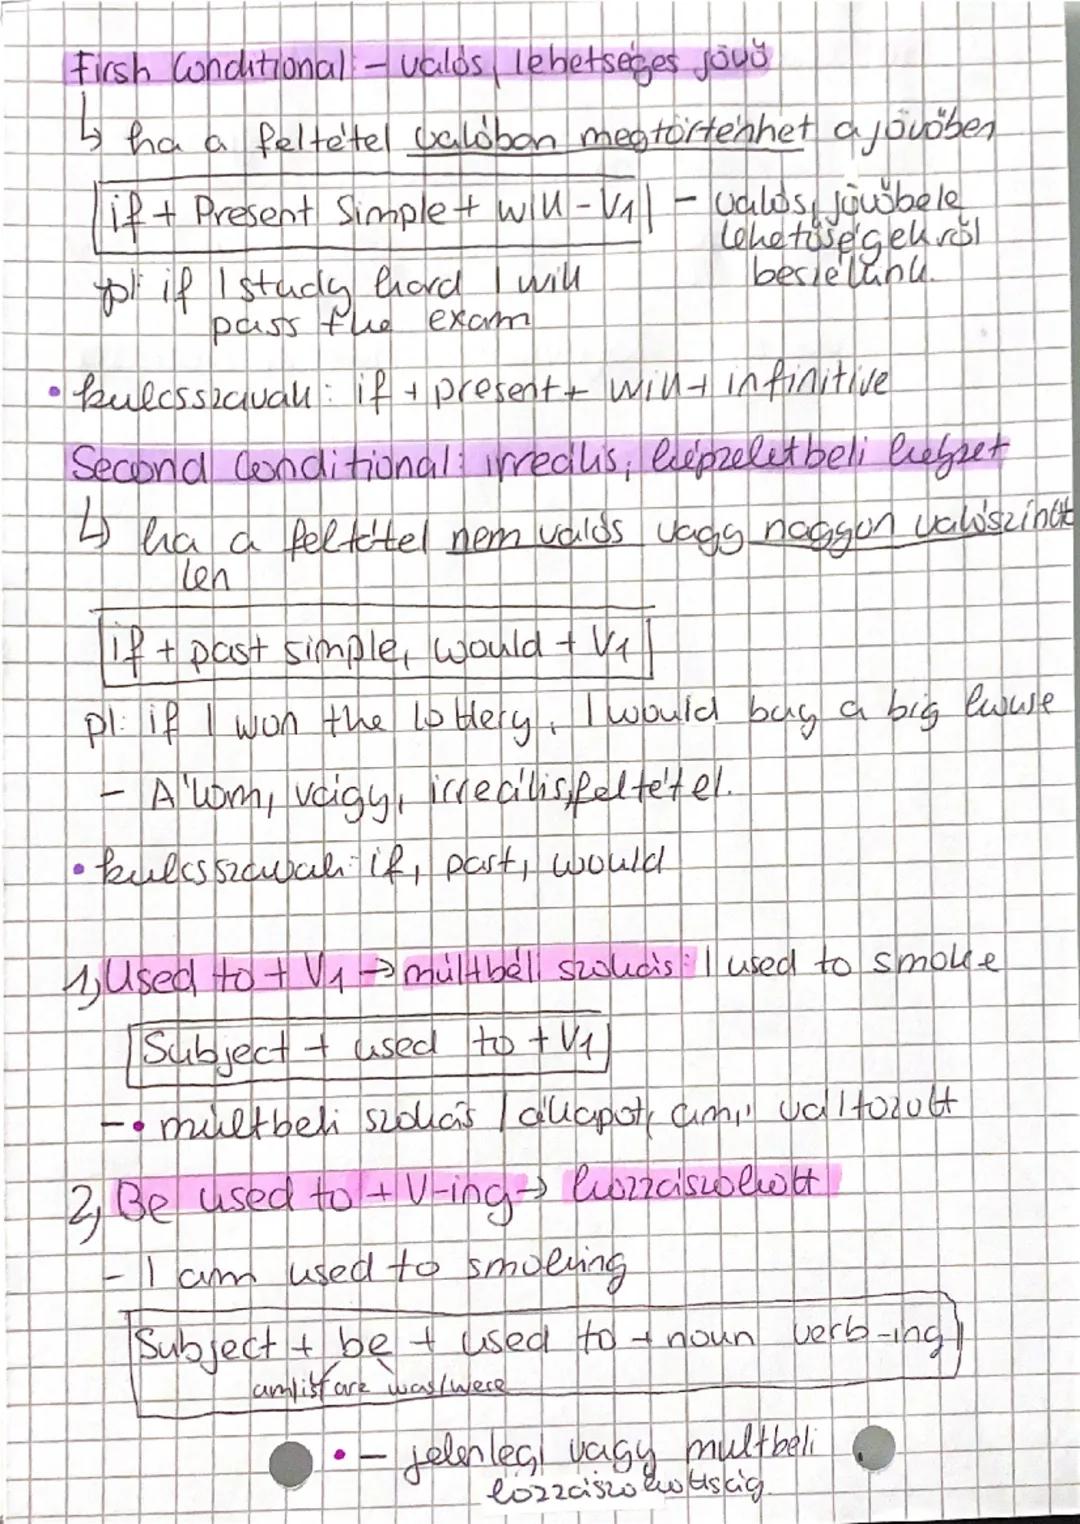 First Conditional: - valós, lehetséges jövő
↳ ha a feltétel valóban megtörténhet a jövőben
if + Present Simple + will - V1 - valós, jövőbele
lehetőségekről
beszélünk.
pl: if I study hard I will
pass the exam
• kulcsszavak: if + present + will + infinitive
Second Conditional: irreális, képzeletbeli helyzet
↳ ha a feltétel nem valós vagy nagyon valószínűt
len
if + past simple, would + V1
pl: if I won the lottery, I would buy a big house
- Álom, vágy, irreális feltétel.
• kulcsszavak: if, past, would
1, Used to + V1 → múltbéli szokás: I used to smoke
Subject + used to + V1
- • múltbeli szokás / állapot, ami változott
2, Be used to + V-ing → hozzászokott
- I am used to smoking
Subject + be + used to + noun verb-ing
am/is/are was/were
• - jelenlegi vagy multbeli
hozzászokottság.